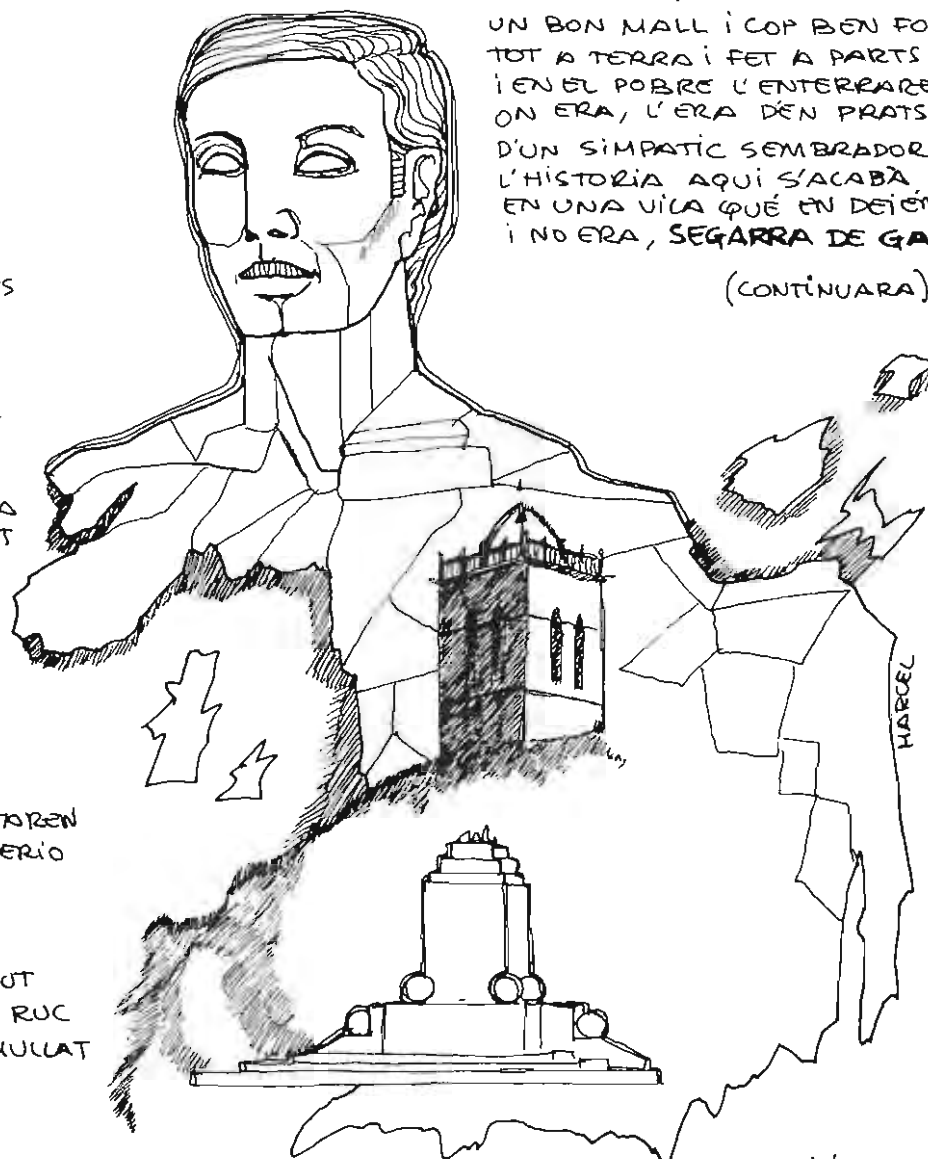 UN BON MALL i COP BEN FO
TOT A TERRA i FET A PARTS
i EN EL POBRE L'ENTERRARE
ON ERA, L'ERA D'EN PRATS
D'UN SiMPATiC SEMBRADOR
L'HiSTORiA AQUi S'ACABÀ
EN UNA ViLA QUÉ EN DEiEN
i NO ERA, SEGARRA DE GA
(CONTiNUARA)
S
D
T
TAREN
ERiO
UT
RUC
MULLAT
MARCEL